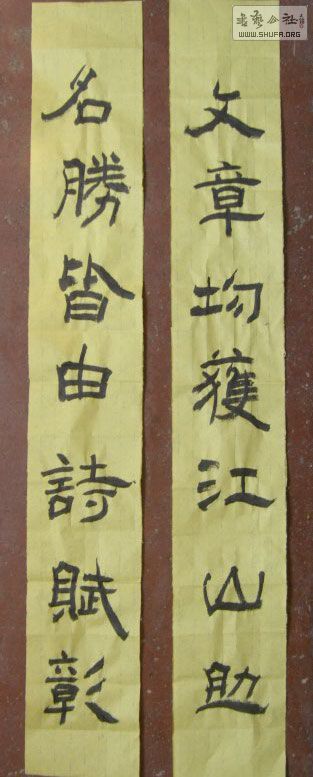 文章均獲江山助
名勝皆由詩賦彰
書藝公社
WWW.SHUFA.ORG